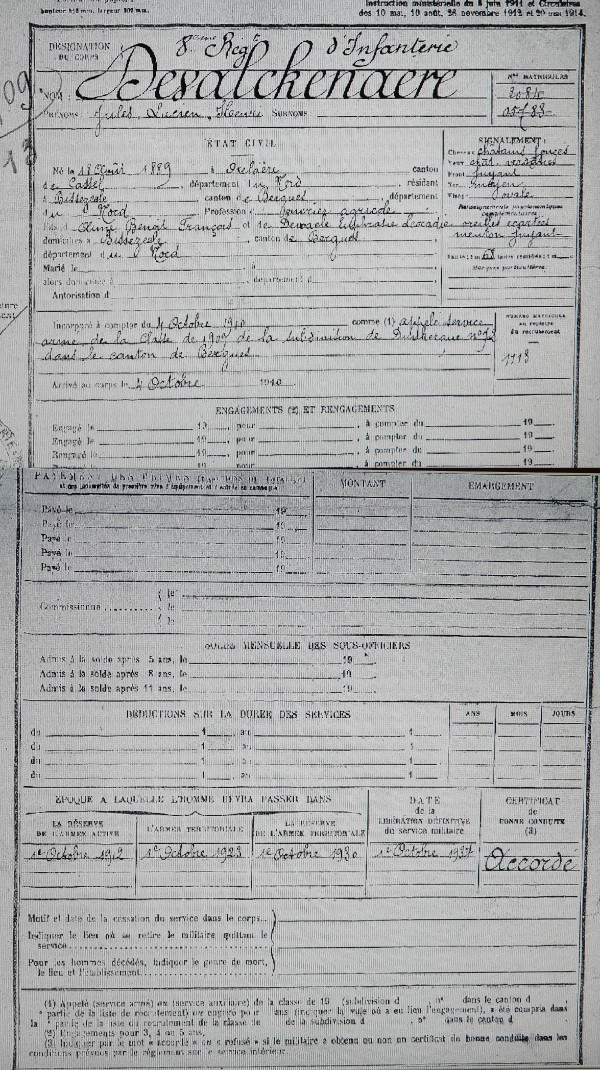 hauteur 8½5 mm. largeur 202 mm.
Instruction ministérielle du 8 juin 1911 et Circulaires
des 10 mai, 10 août, 26 novembre 1912 et 20 mai 1914.
DÉSIGNATION
DU CORPS
8ème Régt d'Infanterie
NOM: Desalckenaere
Nos MATRICULES
2084
PRÉNOMS: Jules, Lucien, SURNOMS
ÉTAT CIVIL
SIGNALEMENT:
Né le 18 Août 1889 à Oxelaëre canton
de Cassel, département du Nord, résidant
à Bissezeele canton de Bergues département
du Nord Profession d'ouvrier agricole
Fils d'Aimé Benoît François et de Léocadie
domiciliés à Bissezeele, canton de Bergues
département du Nord
Marié le à
alors domiciliée à, département d
Autorisation d
Cheveux châtains foncés
Yeux
Front fuyant
Nez moyen
Visage ovale
Renseignements physionomiques
complémentaires:
oreilles écartées
menton fuyant
Marques particulières
Incorporé à compter du 4 Octobre 1910 comme (1) appelé service
armé de la classe de 1909 de la subdivision de Dunkerque n° 72
dans le canton de Bergues
NUMÉRO MATRICULE
au registre
du recrutement
1713
Arrivé au corps le 4 Octobre 1910
ENGAGEMENTS (2) ET RENGAGEMENTS
Engagé le 19, pour, à compter du 19
Engagé le 19, pour, à compter du 19
Rengagé le 19, pour, à compter du 19
Rengagé le 19, pour, à compter du 19
PAYEMENT DES PRIMES
MONTANT
ÉMARGEMENT
Payé le 19
Payé le 19
Payé le 19
Payé le 19
Payé le 19
Commissionné { le
le
le
SOLDE MENSUELLE DES SOUS-OFFICIERS
Admis à la solde après 5 ans, le 19
Admis à la solde après 8 ans, le 19
Admis à la solde après 11 ans, le 19
DÉDUCTIONS SUR LA DURÉE DES SERVICES
ANS MOIS JOURS
du 1, au 1
du 1, au 1
du 1, au 1
du 1, au 1
ÉPOQUE A LAQUELLE L'HOMME DEVRA PASSER DANS
LA RÉSERVE
DE L'ARMÉE ACTIVE
L'ARMÉE TERRITORIALE
LA RÉSERVE
DE L'ARMÉE TERRITORIALE
DATE
de la
LIBÉRATION DÉFINITIVE
du service militaire
CERTIFICAT
de
BONNE CONDUITE
(3)
1er Octobre 1912 1er Octobre 1923 1er Octobre 1930 1er Octobre 1937 Accordé
Motif et date de la cessation du service dans le corps...
Indiquer le lieu où se retire le militaire quittant le
service
Pour les hommes décédés, indiquer le genre de mort,
le lieu et l'établissement
(1) Appelé (service armé) ou (service auxiliaire) de la classe de 19 (subdivision d, n° dans le canton d,
partie de la liste de recrutement) ou engagé pour ans (indiquer la ville où a eu lieu l'engagement), a été compris dans
la partie de la liste du recrutement de la classe de de la subdivision d, n° dans le canton d
(2) Engagements pour 3, 4 ou 5 ans.
(3) Indiquer par le mot « accordé » ou « refusé » si le militaire a obtenu ou non un certificat de bonne conduite dans les
conditions prévues par le règlement sur le service intérieur.